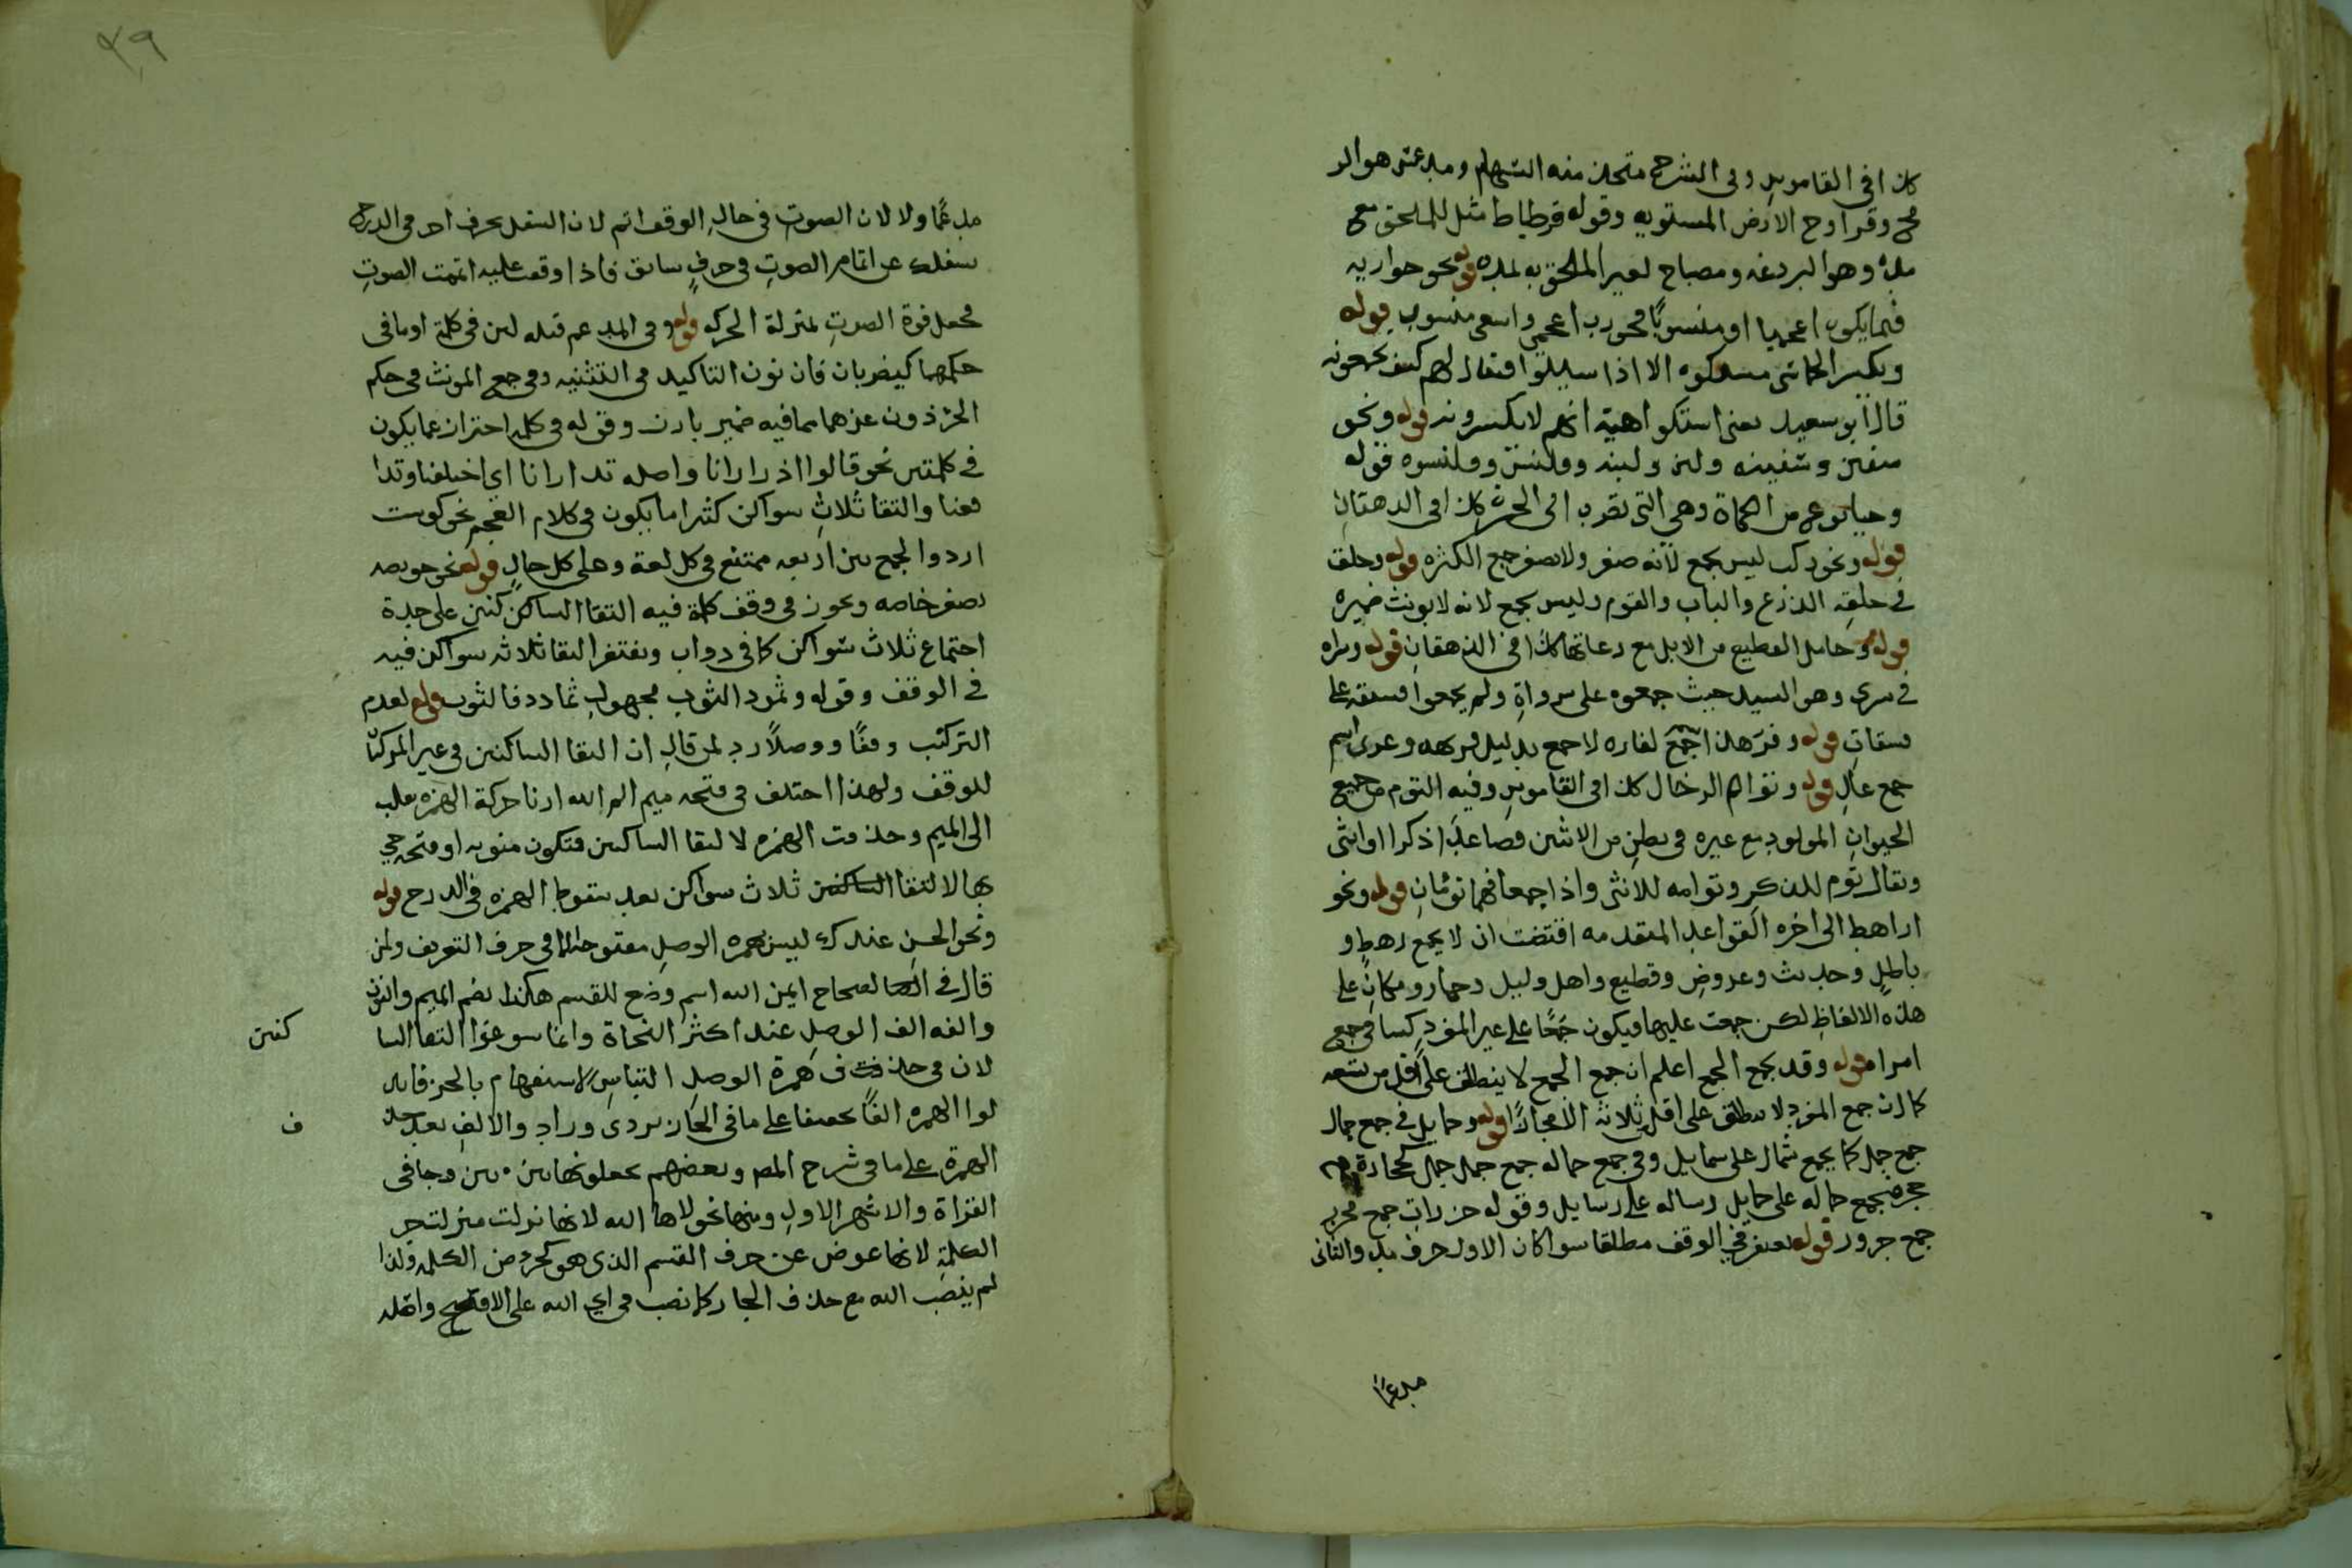 كذا في القاموس وفي الشرح متخذ منه السهام ومدعس هو الر
مح وقرواح الارض المستويه وقوله قرطاط مثل للملحق مع
مده وهو البردعه ومصباح لغير الملحق به لمده قوله نحو جواربه
فيما يكون اعجميا او منسوبا فجورب اعجمي واشعثي منسوب قوله
وتكسير الخماسي مستكره الا اذا سيلوا فيقال لهم كيف تجمعونه
قال ابو سعيد يعنى استكراهية انهم لا يكسرونه قوله ونحو
سفين وسفينه ولبن ولبنه وقلنس وقلنسوه قوله
من الكماة وهي التي تضرب الى الحمرة كذا في الدهقان
قوله ونحو ركب ليس بجمع لانه صغر ولا يصغر جمع الكثره قوله وحلق
في حلقه الدرع والباب والقوم وليس بجمع لانه لا يونث ضميره
قوله وجامل القطيع من الابل مع رعاتها كذا في الدهقان قوله وسراه
في سري وهو السيد حيث جمعوه على سرواة ولم يجمعوا فسقه على
فسقات قوله وفره هذا اجمع لفاره لا جمع بدليل فريهه وغزي اسم
جمع غاز قوله وتوام الرخال كذا في القاموس وفيه التوم من جميع
الحيوان المولود مع غيره في بطن من الاثنين فصاعدا ذكرا او انثى
ويقال توم للذكر وتوامه للانثى واذا جمعا فهما توئمان قوله ونحو
اراهط الى اخره القواعد المتقدمه اقتضت ان لا يجمع رهط و
باطل وحديث وعروض وقطيع واهل وليل وحمار ومكان على
هذه الالفاظ لكن جمعت عليها فيكون جمعا على غير المفرد كنسا في جمع
امراه قوله وقد يجمع الجمع اعلم ان جمع الجمع لا ينطلق على اقل من تسعه
كما ان جمع المفرد لا ينطلق على اقل ثلاثه الا مجازا قوله وجمايل في جمع جمال
جمع جمل كما يجمع شمال على شمايل وفي جمع جماله جمع جمل جمل كحجارة جمع
حجر فيجمع جماله على جمايل رساله على رسايل وقوله جزرات جمع جزر
جمع جزور قوله يغتفر في الوقف مطلقا سوا كان الاول حرف مد والثاني
مدغما
٤٩
مدغما ولا لان الصوت في حال الوقف اتم لان النقل بحرف اخر في الدرج
يشغلك عن اتمام الصوت في حرف سابق فاذا وقفت عليه اتممت الصوت
فجعل قوة الصوت بمنزلة الحركه قوله وفي المدغم قبله لين في كلمة او ما في
حكمهما كيضربان فان نون التاكيد في التثنيه وفي جمع المونث في حكم
الجزء دون غيرهما مما فيه ضمير بارز وقوله في كلمه احتراز عما يكون
في كلمتين نحو قالوا ادارانا واصله تدارانا اي اختلفنا وتدا
فعنا والتقا ثلاث سواكن كثيرا ما يكون في كلام العجم نحو كوست
اردوا لجمع بين اربعه ممتنع في كل لغة وعلى كل حال قوله نحو خويصه
تصغير خاصه ويجوز في وقف كلمة فيه التقا الساكنين على حدة
اجتماع ثلاث سواكن كما في دواب ويغتفر التقا ثلاثه سواكن فيه
في الوقف وقوله وتمود الثوب مجهول تمادد فالثوب قوله لعدم
التركيب وقفا ووصلا رد لمن قال ان التقا الساكنين في غير المركبا
للوقف ولهذا اختلف في فتحه ميم الم الله اذا حركة الهمزه نقلت
الى الميم وحذفت الهمزه لا لتقا الساكنين فتكون منويه او فتحه جي
بها لالتقا الساكنين ثلاث سواكن بعد سقوط الهمزه في الدرج قوله
ونحو الحسن عندك ليس همزه الوصل مفتوحه الا في حرف التعريف ولمن
قال في الصحاح ايمن الله اسم وضع للقسم هكذا بضم الميم والنون
والفه الف الوصل عند اكثر النحاة وانما سوغوا التقا السا
كنين
لان في حذف همزة الوصل التباس الاستفهام بالخبر فابد
لوا الهمزه الفا تحقيقا على ما في الجاربردي وزاد والالف بعد حذ
ف
الهمزة على ما في شرح المص وبعضهم يجعلونها بين بين وجا في
القراة والاشهر الاول ومنها نحو لاها الله لانها نزلت منزلت جز
الكلمة لانها عوض عن حرف القسم الذي هو كجزء من الكلمه ولذا
لم ينصب الله مع حذف الجار كما نصب في اي الله على الافصح واصله